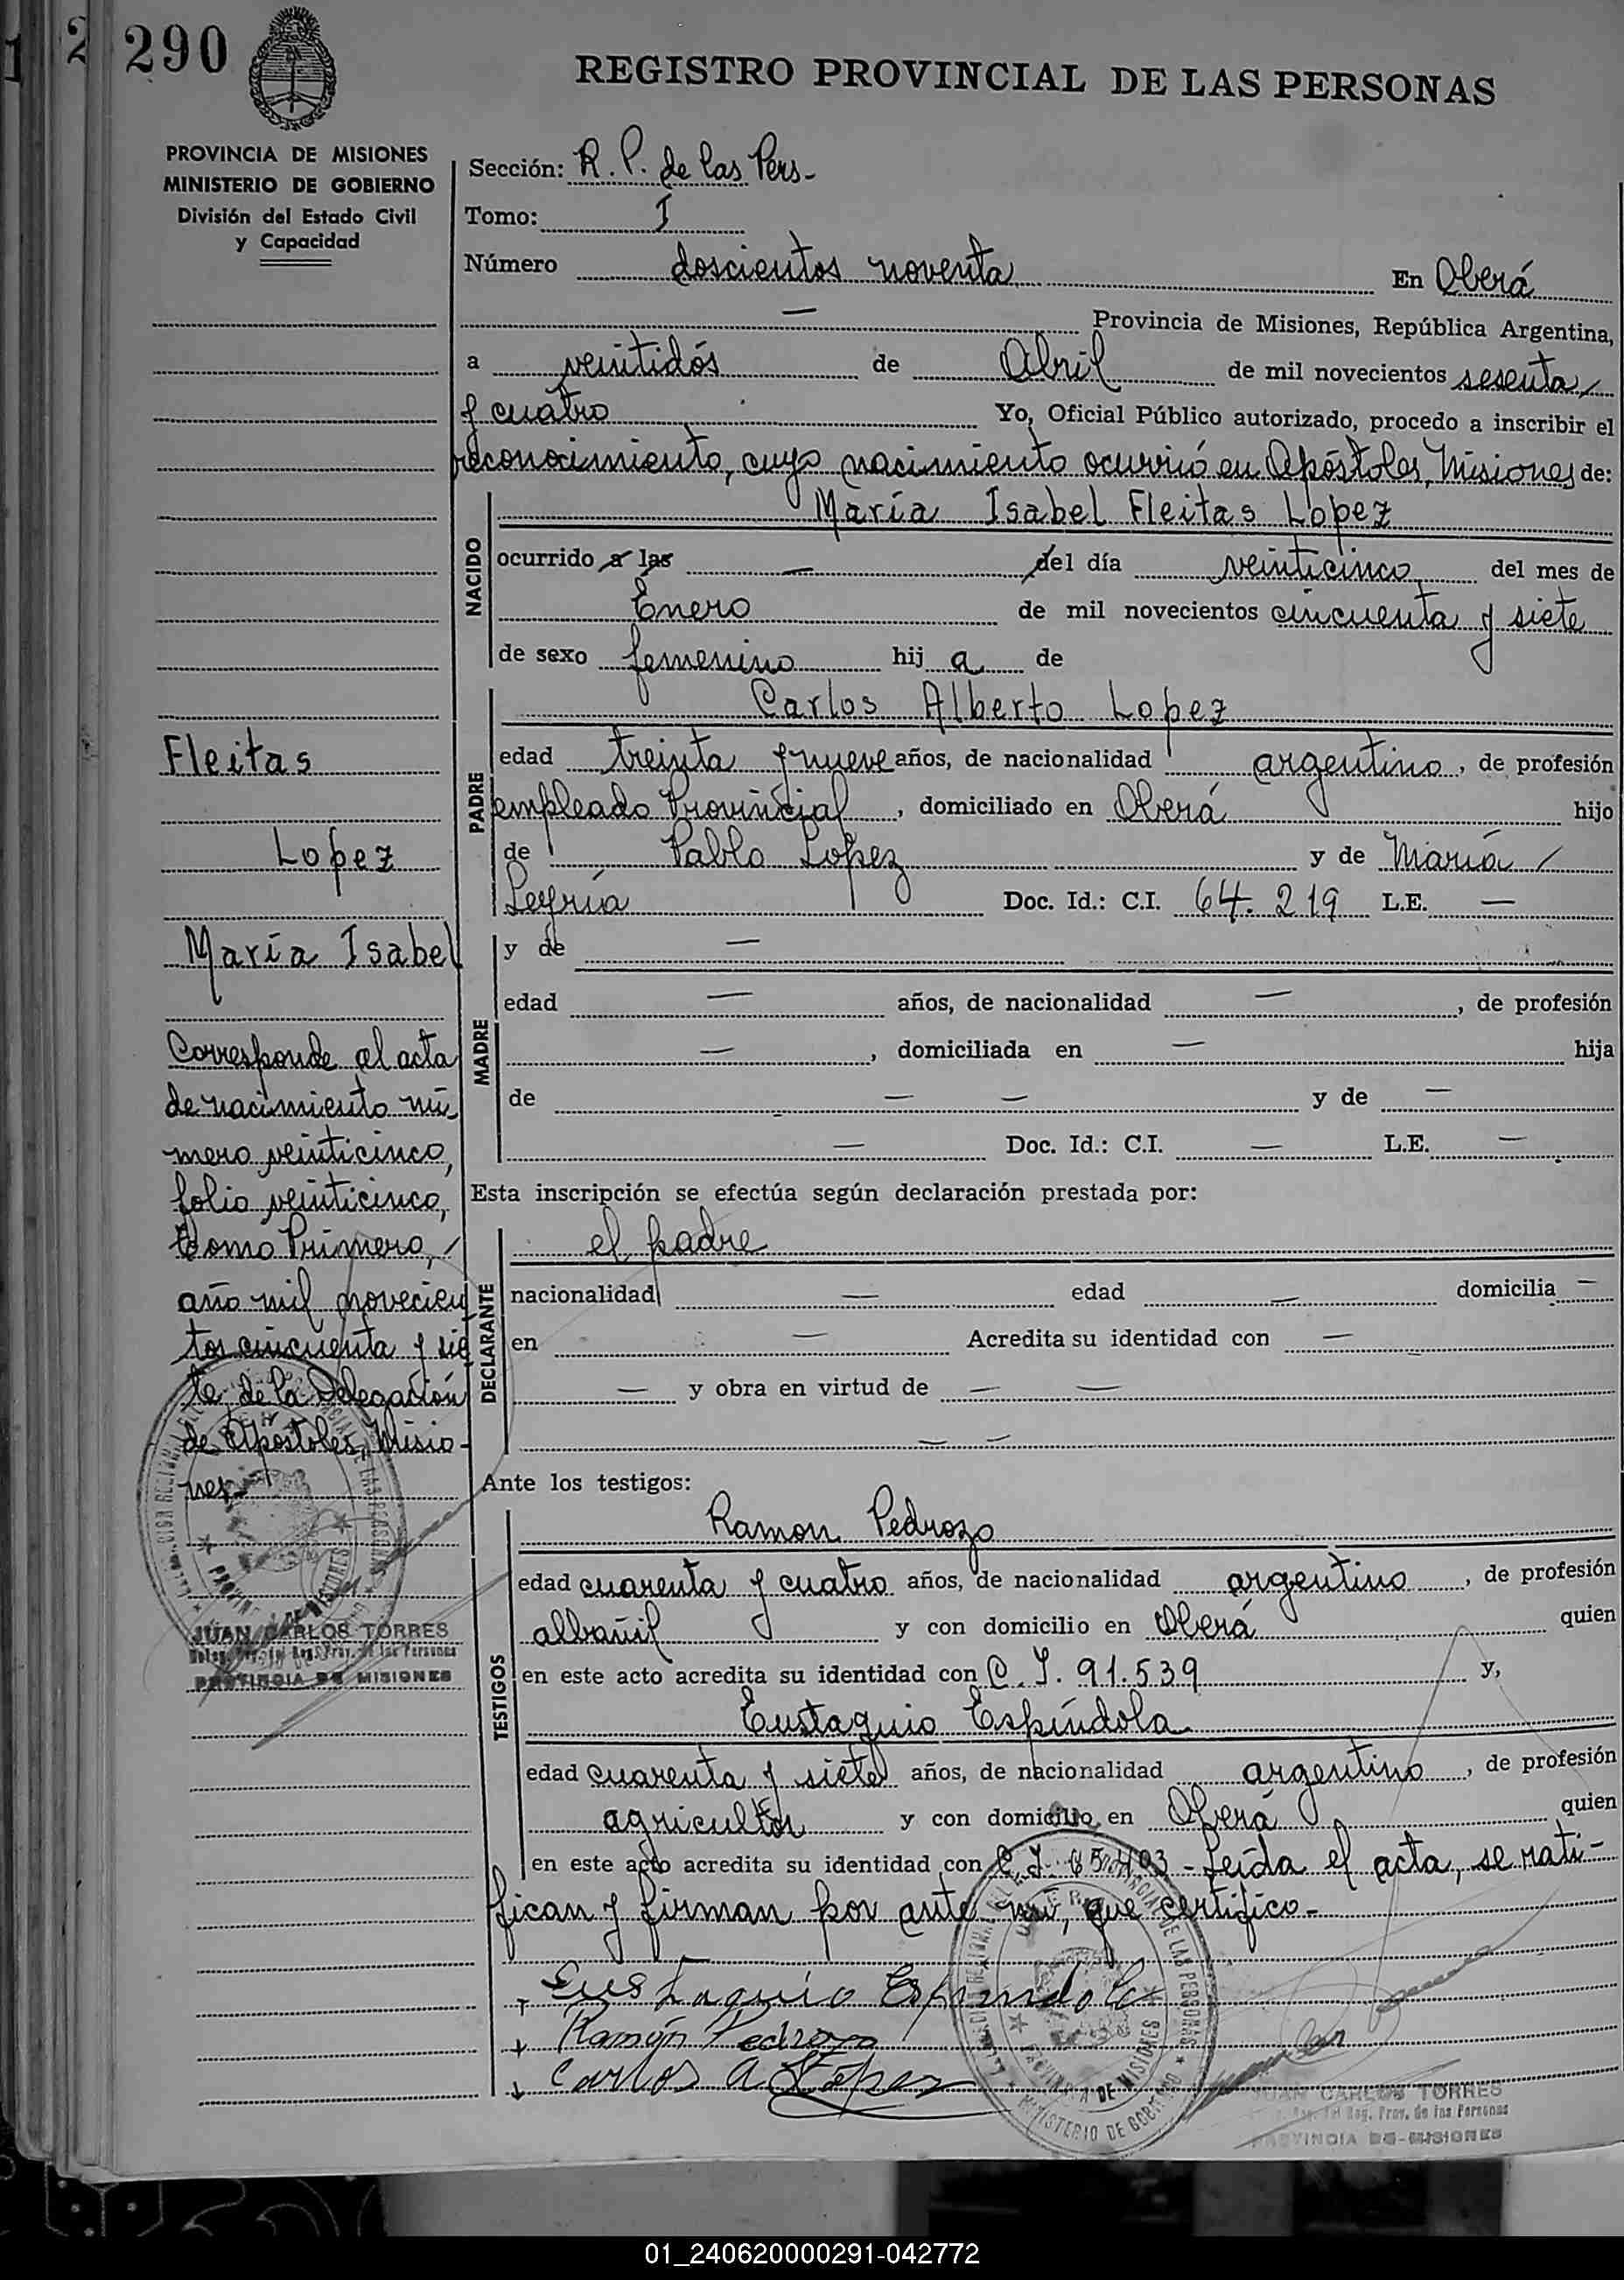 290
REGISTRO PROVINCIAL DE LAS PERSONAS
PROVINCIA DE MISIONES
MINISTERIO DE GOBIERNO
División del Estado Civil
y Capacidad
Sección: R. P. de las Pers-
Tomo: I
Número doscientos noventa En Oberá
— Provincia de Misiones, República Argentina,
a veintidós de Abril de mil novecientos sesenta/
y cuatro Yo, Oficial Público autorizado, procedo a inscribir el
reconocimiento, cuyo nacimiento ocurrió en Apóstoles, Misiones de:
NACIDO
María Isabel Fleitas Lopez
ocurrido a las — del día veinticinco del mes de
Enero de mil novecientos cincuenta y siete
de sexo femenino hij a de
PADRE
Carlos Alberto Lopez
edad treinta y nueve años, de nacionalidad argentino, de profesión
empleado Provincial, domiciliado en Oberá hijo
de Pablo Lopez y de María /
Doc. Id.: C.I. 64.219 L.E. —
MADRE
y de —
edad — años, de nacionalidad —, de profesión
—, domiciliada en — hija
de — — y de —
— Doc. Id.: C.I. — L.E. —
Esta inscripción se efectúa según declaración prestada por:
DECLARANTE
el padre
nacionalidad — edad — domicilia —
en — Acredita su identidad con —
— y obra en virtud de — —
— —
Ante los testigos:
TESTIGOS
Ramon Pedrozo
edad cuarenta y cuatro años, de nacionalidad argentino, de profesión
albañil y con domicilio en Oberá quien
en este acto acredita su identidad con C.I. 91.539 y,
Eustaquio Espíndola
edad cuarenta y siete años, de nacionalidad argentino, de profesión
agricultor y con domicilio en Oberá quien
en este acto acredita su identidad con C.I. - Leída el acta, se rati-
fican y firman por ante mí, que certifico-
Eustaquio Espindola
Ramón Pedrozo
Carlos A López
Fleitas
Lopez
María Isabel
Corresponde al acta
de nacimiento nú-
mero veinticinco,
folio veinticinco,
tomo Primero, /
año mil novecien
tos cincuenta y sie
te, de la Delegación
de Apóstoles, Misio-
nes-
JUAN CARLOS TORRES
Reg. Prov. de las Personas
PROVINCIA DE MISIONES
PROVINCIA DE MISIONES
MINISTERIO DE GOBIERNO
JUAN CARLOS TORRES
Reg. Prov. de las Personas
PROVINCIA DE MISIONES
01_240620000291-042772